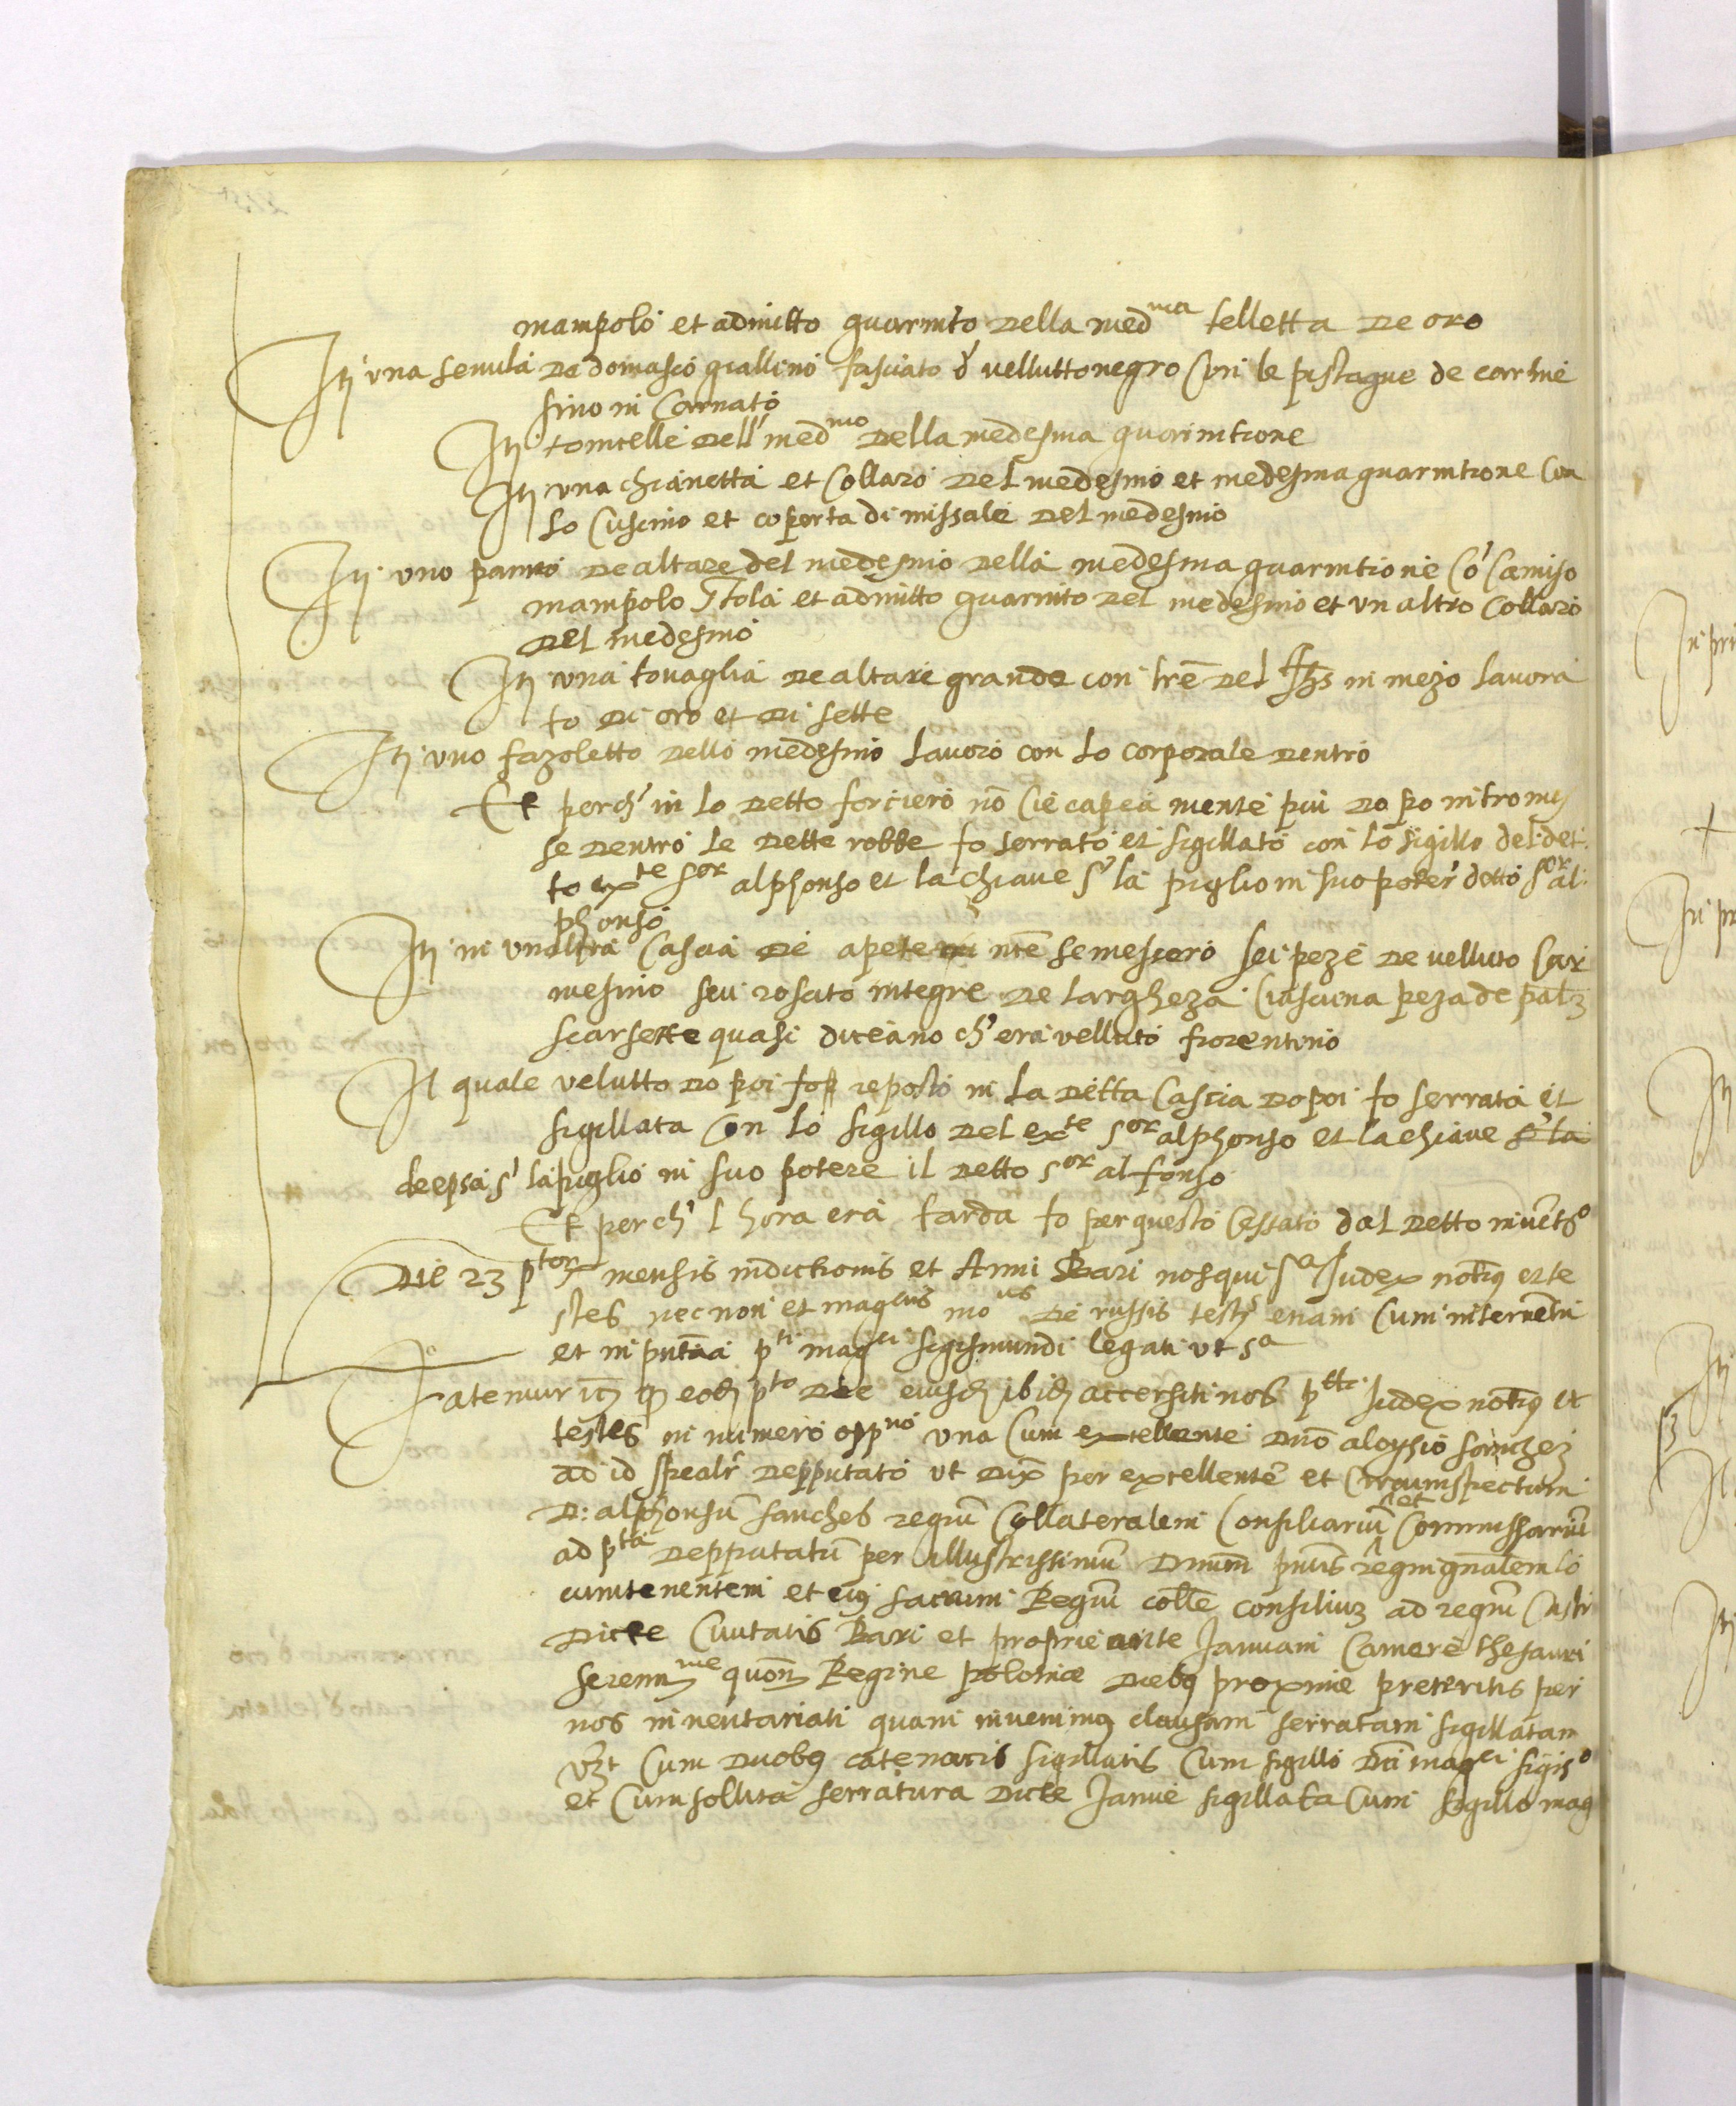 mampolo et admitto guarnito della med^ma telletta de oro
Itj una senula de domasco giallino fasciato d' velluttonegro con le pistague de carme
sino in Carnato
Itj tonicelle dell' med^mo della medesma guarnitione
Itj una chianetta et Collaro del medesmo et medesma guarnitione con
lo Cuscino et coperta di missale del medesmo
Itj uno panno de altare del medesmo della medesma guarnitione Co' Camiso
mampolo Stola et admitto guarnito del medesmo et un altro Collaro
del medesmo
Itj una tovaglia de altare grande con tre del Jhs in mezo lavora
to di oro et di sette
Itj uno fazoletto dello medesmo lavoro con lo corporale dentro
Et perch' in lo detto forciero no Cie capea niente piu dopo intromes
se dentro le dette robbe fo serrato et sigillato con lo sigillo del det:
to ex^te s^or alphonso et la chiave s' la piglio in suo poter' detto s^or al:
phonso
Itj in unaltra Cascia de apete nte semescero sei peze de velluto Car
mesino seu rosato integre de largheza Ciascuna peza de pal
scarsette quasi diceano ch' era vellutó fiorentino
Il quale velutto dopoi fo reposto in la detta Cascia dopoi fo serrata et
sigillata con lo sigillo del ex^te s^or alphonso et lachiave s' la
deepsa s' lapiglio in suo potere il detto s^or alfonso
Et perch' l hora era tarda fo per questo Cessato dal detto invent^o
Die 23 p^tor mensis indictionis et Anni Bari nos qui s^a Judex notus et te
stes nec non et mag^cus de russis test' etiam Cum interventu
et in p^ntia p^ti mag^ci sigismundi legati ut s^a
Fatemur q eod p^to die eiusd ibid accersiti nos p^tti Judex notus et
testes in numero opp^no una Cum excellente Dno aloysio sanchez
ad id spealr depputato ut dix per excellente et Circumspectum
D: alphonsu sanches regiu Collateralem Consiliariu et Commissariu
ad p^ta depputatu per illustrissimu Dnum regni gnalem lo
cumtenentem et eius sacrum Regiu colle consiliuz ad regiu Castri
dicte Civitatis Bari et proprie ante Januam Camere thesauri
serenn^me quon Regine polonie diebus proxime preteritis per
nos inventariati quam invenimus clausam serratam sigillatam
vzt Cum duobus catenaris sigillatis Cum sigillo Dti mag^ci sigis^o
et Cum solluta serratura dicte Janue sigillata Cum sigillo mag